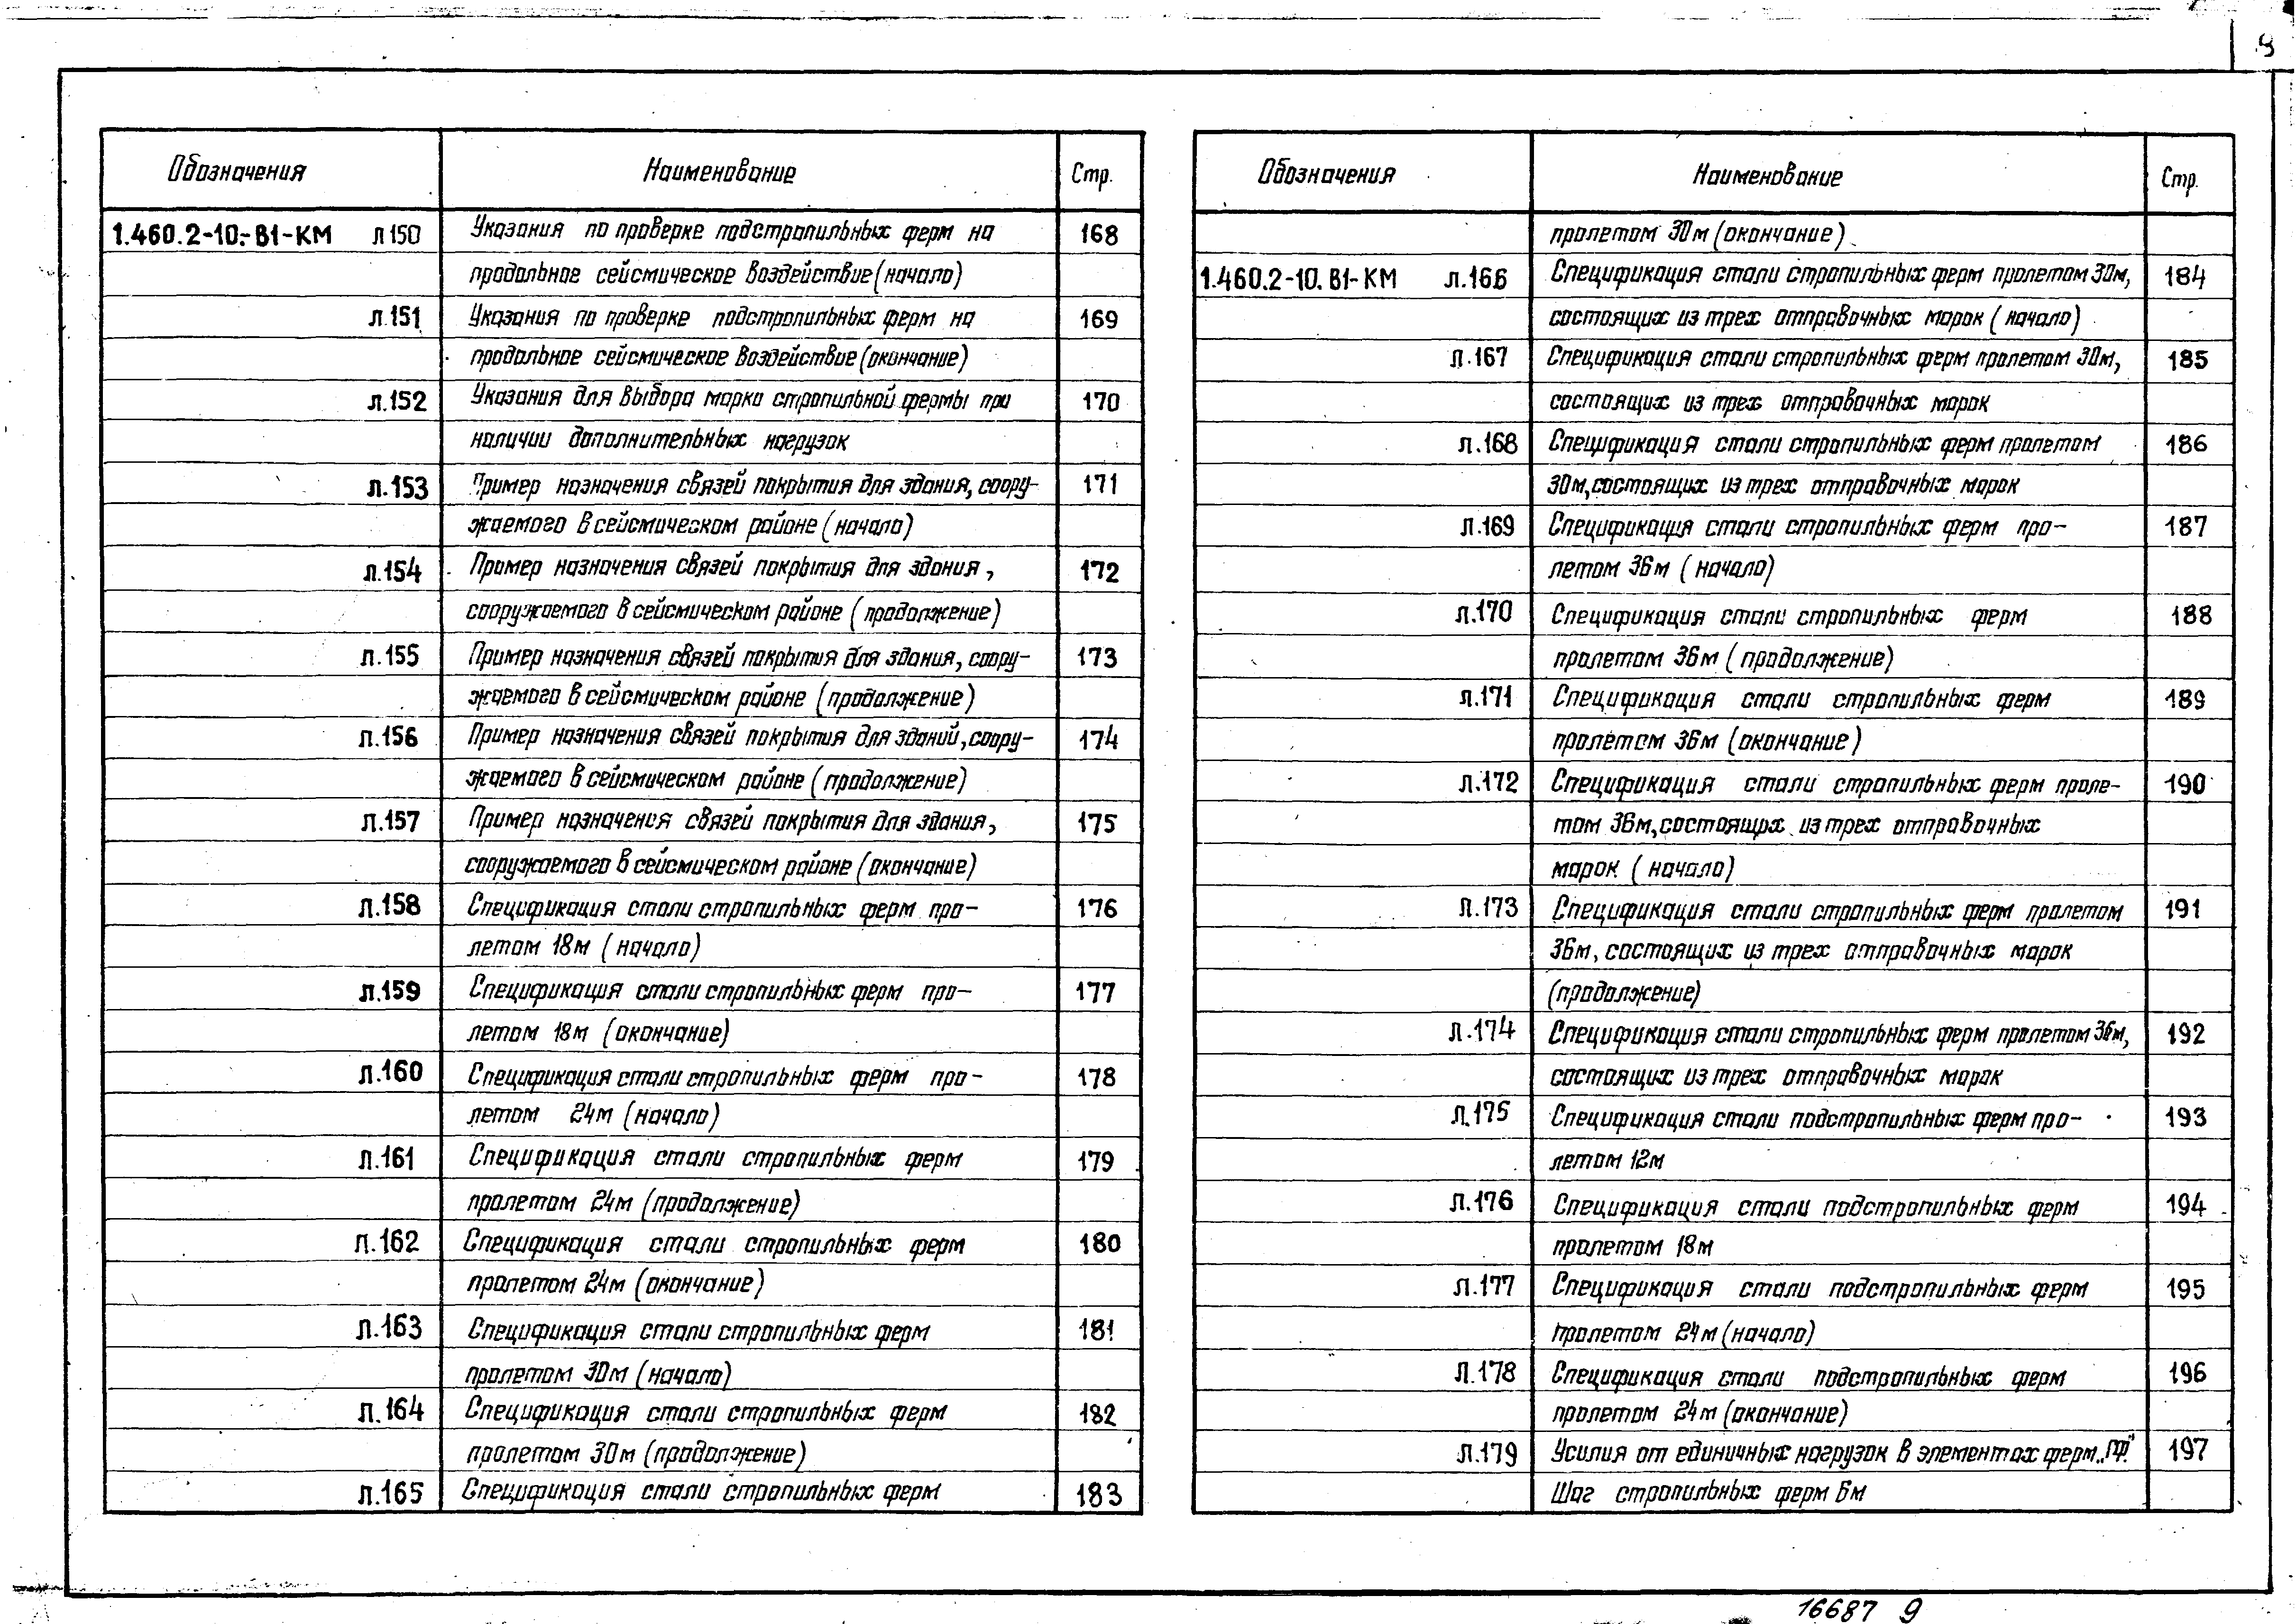 9
Обозначения Наименование Стр.
1.460.2-10.-В1-КМ л150 Указания по проверке подстропильных ферм на 168
продольное сейсмическое воздействие (начало)
л.151 Указания по проверке подстропильных ферм на 169
продольное сейсмическое воздействие (окончание)
л.152 Указания для выбора марки стропильной фермы при 170
наличии дополнительных нагрузок
л.153 Пример назначения связей покрытия для здания, соору- 171
жаемого в сейсмическом районе (начало)
л.154 Пример назначения связей покрытия для здания, 172
сооружаемого в сейсмическом районе (продолжение)
л.155 Пример назначения связей покрытия для здания, соору- 173
жаемого в сейсмическом районе (продолжение)
л.156 Пример назначения связей покрытия для зданий, соору- 174
жаемого в сейсмическом районе (продолжение)
л.157 Пример назначения связей покрытия для здания, 175
сооружаемого в сейсмическом районе (окончание)
л.158 Спецификация стали стропильных ферм про- 176
летом 18м (начало)
л.159 Спецификация стали стропильных ферм про- 177
летом 18м (окончание)
л.160 Спецификация стали стропильных ферм про- 178
летом 24м (начало)
л.161 Спецификация стали стропильных ферм 179
пролетом 24м (продолжение)
л.162 Спецификация стали стропильных ферм 180
пролетом 24м (окончание)
л.163 Спецификация стали стропильных ферм 181
пролетом 30м (начало)
л.164 Спецификация стали стропильных ферм 182
пролетом 30м (продолжение)
л.165 Спецификация стали стропильных ферм 183
Обозначения Наименование Стр.
пролетом 30м (окончание)
1.460.2-10. В1-КМ л.166 Спецификация стали стропильных ферм пролетом 30м, 184
состоящих из трех отправочных марок (начало)
л.167 Спецификация стали стропильных ферм пролетом 30м, 185
состоящих из трех отправочных марок
л.168 Спецификация стали стропильных ферм пролетом 186
30м, состоящих из трех отправочных марок
л.169 Спецификация стали стропильных ферм про- 187
летом 36м (начало)
л.170 Спецификация стали стропильных ферм 188
пролетом 36м (продолжение)
л.171 Спецификация стали стропильных ферм 189
пролетом 36м (окончание)
л.172 Спецификация стали стропильных ферм проле- 190
том 36м, состоящих из трех отправочных
марок (начало)
л.173 Спецификация стали стропильных ферм пролетом 191
36м, состоящих из трех отправочных марок
(продолжение)
л.174 Спецификация стали стропильных ферм пролетом 36м, 192
состоящих из трех отправочных марок
л.175 Спецификация стали подстропильных ферм про- 193
летом 12м
л.176 Спецификация стали подстропильных ферм 194
пролетом 18м
л.177 Спецификация стали подстропильных ферм 195
пролетом 24м (начало)
л.178 Спецификация стали подстропильных ферм 196
пролетом 24м (окончание)
л.179 Усилия от единичных нагрузок в элементах ферм „ПФ" 197
Шаг стропильных ферм 6м
16687 9